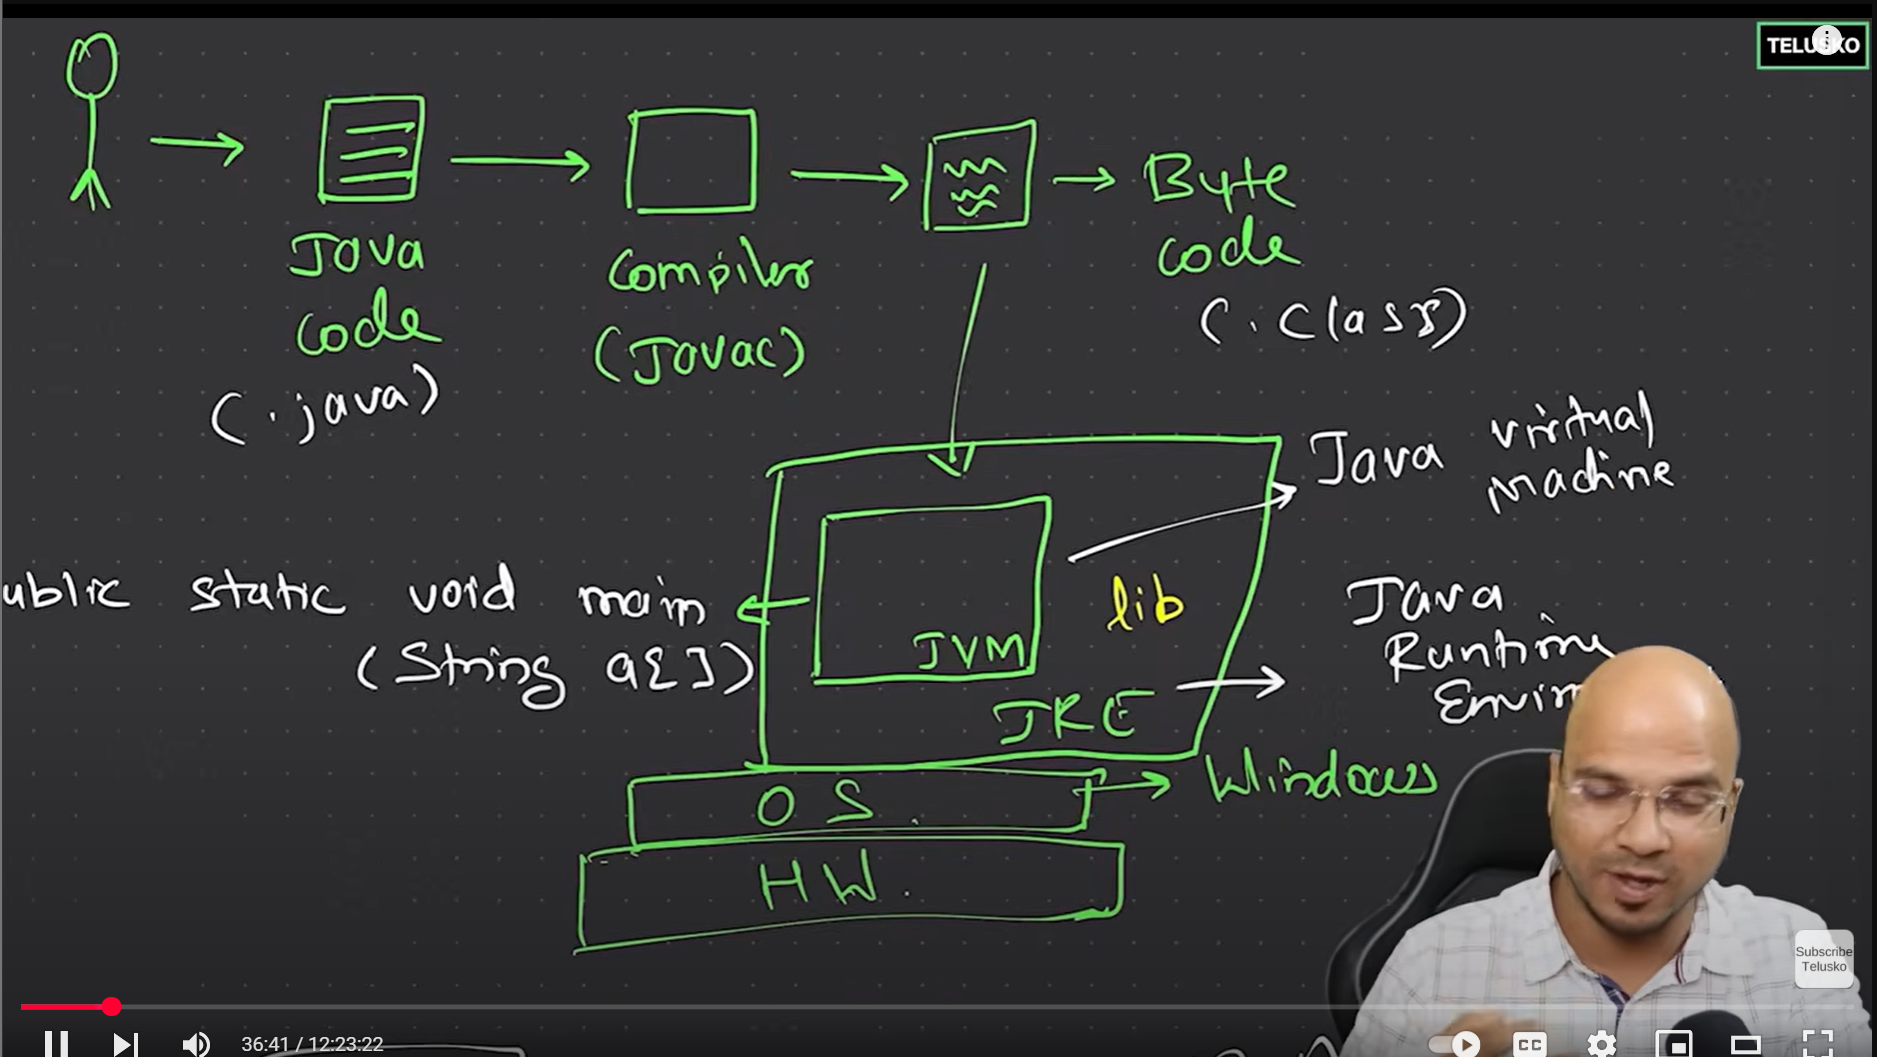 TELUSKO
Java
code
(.java)
Compiler
(Javac)
Byte
code
(.class)
Java virtual
machine
ublic static void main
(String a[])
lib
JVM
JRE
Java
Runtime
Envir
OS.
Windows
HW.
Subscribe
Telusko
36:41 / 12:23:22
CC